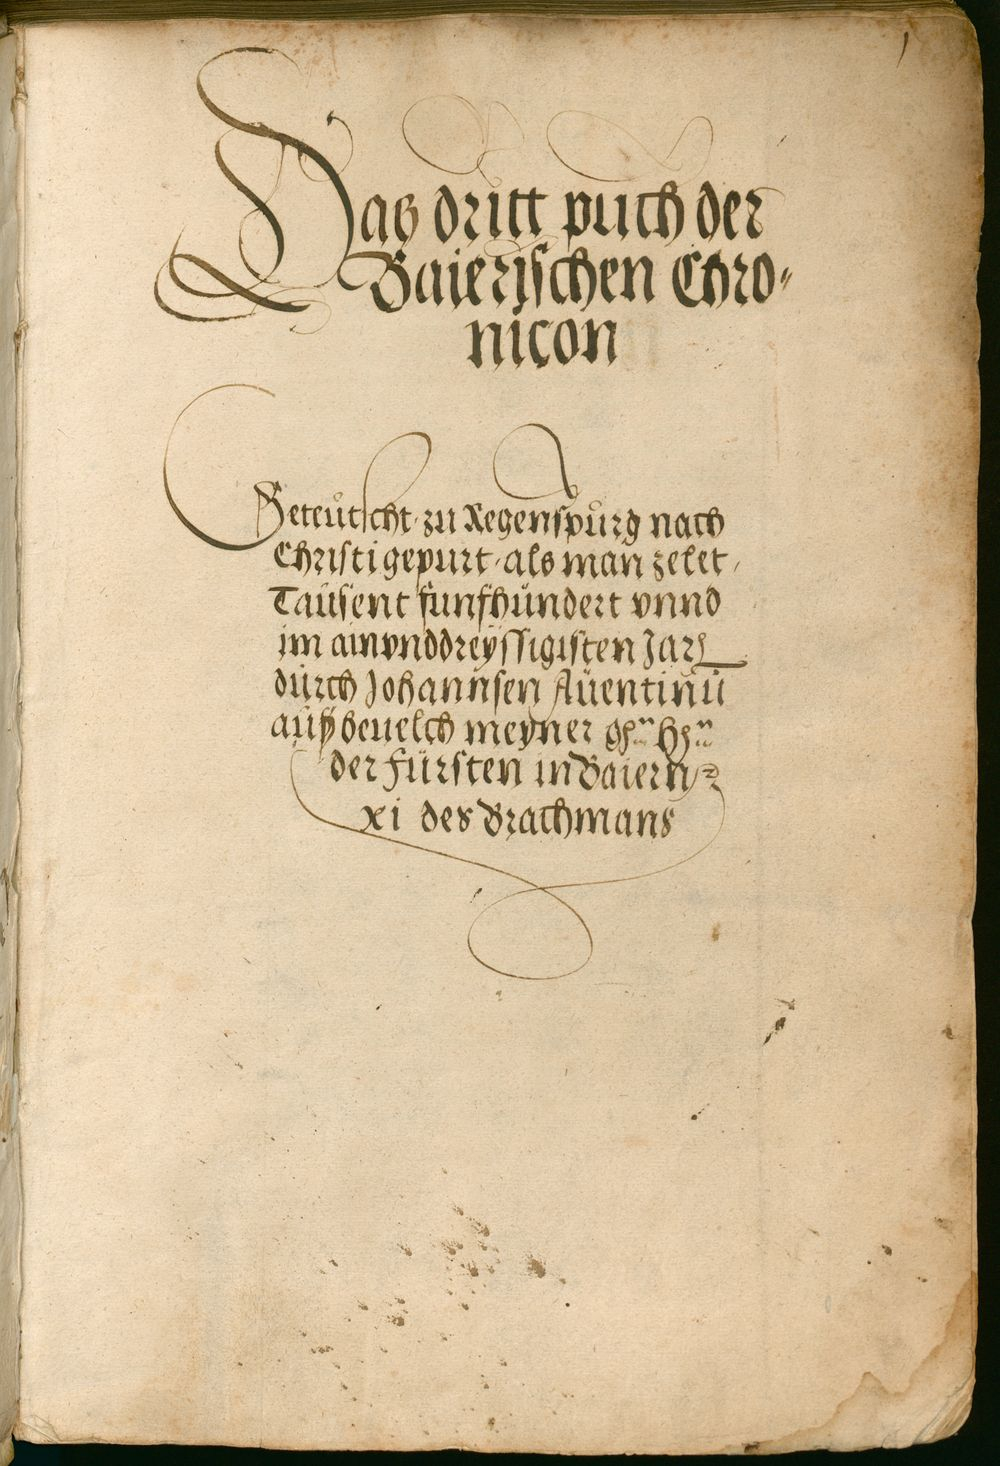 1
Das dritt puch der
Baierischen Chro-
nicon
Geteutscht zu Regenspurg nach
Christi gepurt als man zelet
Tausent funfhundert vnnd
im ainvnddreyssigisten Jar
durch Johannsen Auentinū
auß beuelch meyner
der Fürsten in Baiern
xi des Brachmans